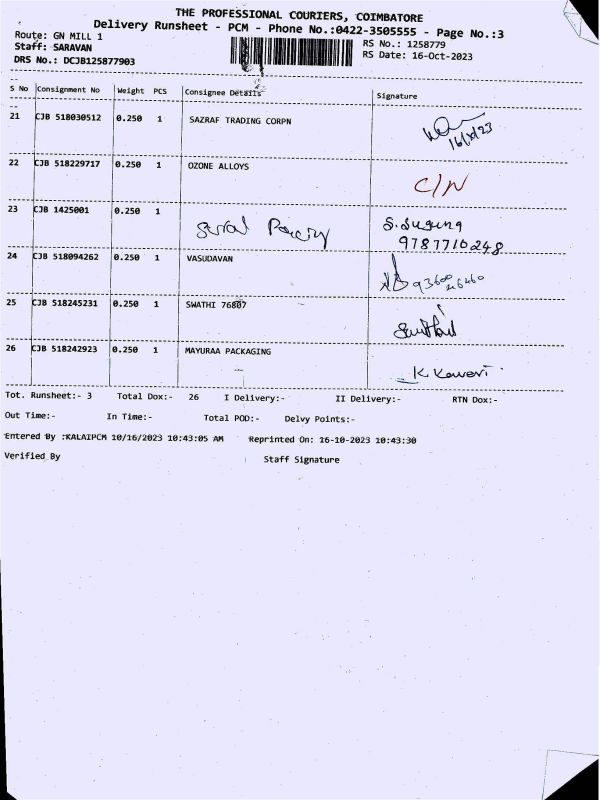 THE PROFESSIONAL COURIERS, COIMBATORE
Delivery Runsheet - PCM - Phone No.:0422-3505555 - Page No.:3
Route: GN MILL 1
RS No.: 1258779
Staff: SARAVAN
RS Date: 16-Oct-2023
DRS No.: DCJB125877903
S No Consignment No Weight PCS Consignee Details Signature
21 CJB 518030512 0.250 1 SAZRAF TRADING CORPN
16/X/23
22 CJB 518229717 0.250 1 OZONE ALLOYS
C/N
23 CJB 1425001 0.250 1 S. Suguna
9787710248
24 CJB 518094262 0.250 1 VASUDAVAN
25 CJB 518245231 0.250 1 SWATHI 76807
26 CJB 518242923 0.250 1 MAYURAA PACKAGING
K. Kaweri
Tot. Runsheet:- 3 Total Dox:- 26 I Delivery:- II Delivery:- RTN Dox:-
Out Time:- In Time:- Total POD:- Delvy Points:-
Entered By :KALAIPCM 10/16/2023 10:43:05 AM Reprinted On: 16-10-2023 10:43:30
Verified By Staff Signature